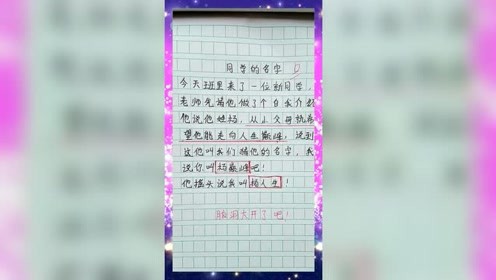 同学的名字
今天班里来了一位新同学，
老师先请他做了个自我介绍
他说他姓杨，从小父母就希
望他能走向人生巅峰，说到
这他叫我们猜他的名字，我
说你叫杨巅峰吧！
他摇头说我叫杨人生！
脑洞大开了吧！